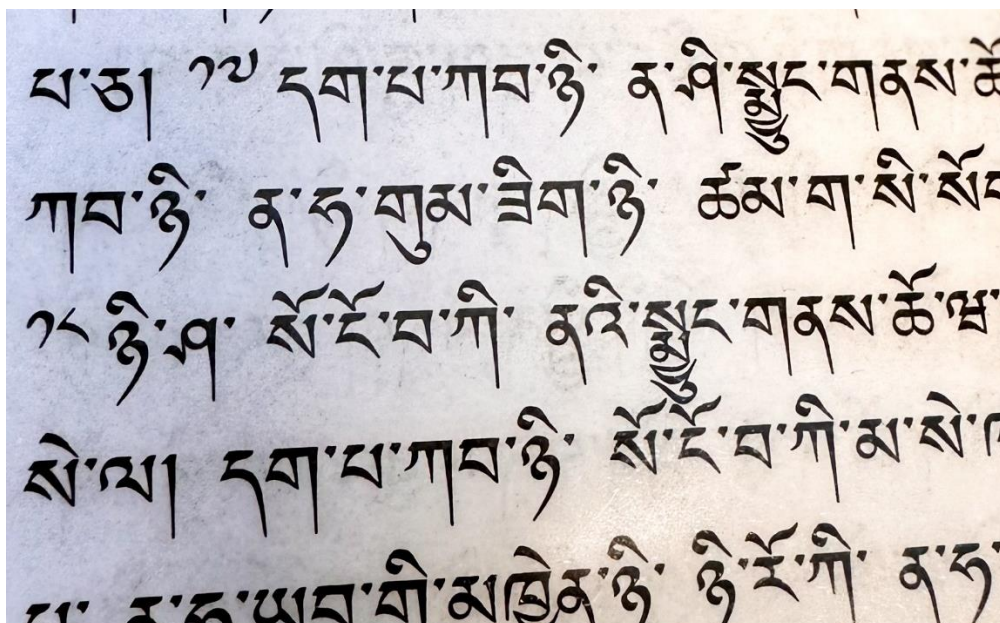 པ་ཅ། ༡༧ དག་པ་ཀབ་ཉི་ ན་ཤི་སྨྱུང་གནས་ཚོ
ཀབ་ཉི་ ན་ཧ་གུམ་ཟིག་ཉི་ ཚམ་ག་སི་
༡༨ ཉི་ཤ་ སོ་ངོ་བ་ཀི་ ནའི་སྨྱུང་གནས་ཚོ་
སེ་ལ། དག་པ་ཀབ་ཉི་ སོ་ངོ་བ་ཀི་མ་སེ་
ན་ཧ་ཡབ་གི་མཁྱེན་ཉི་ ཉི་རོ་ཀི་ ན་ཧ་